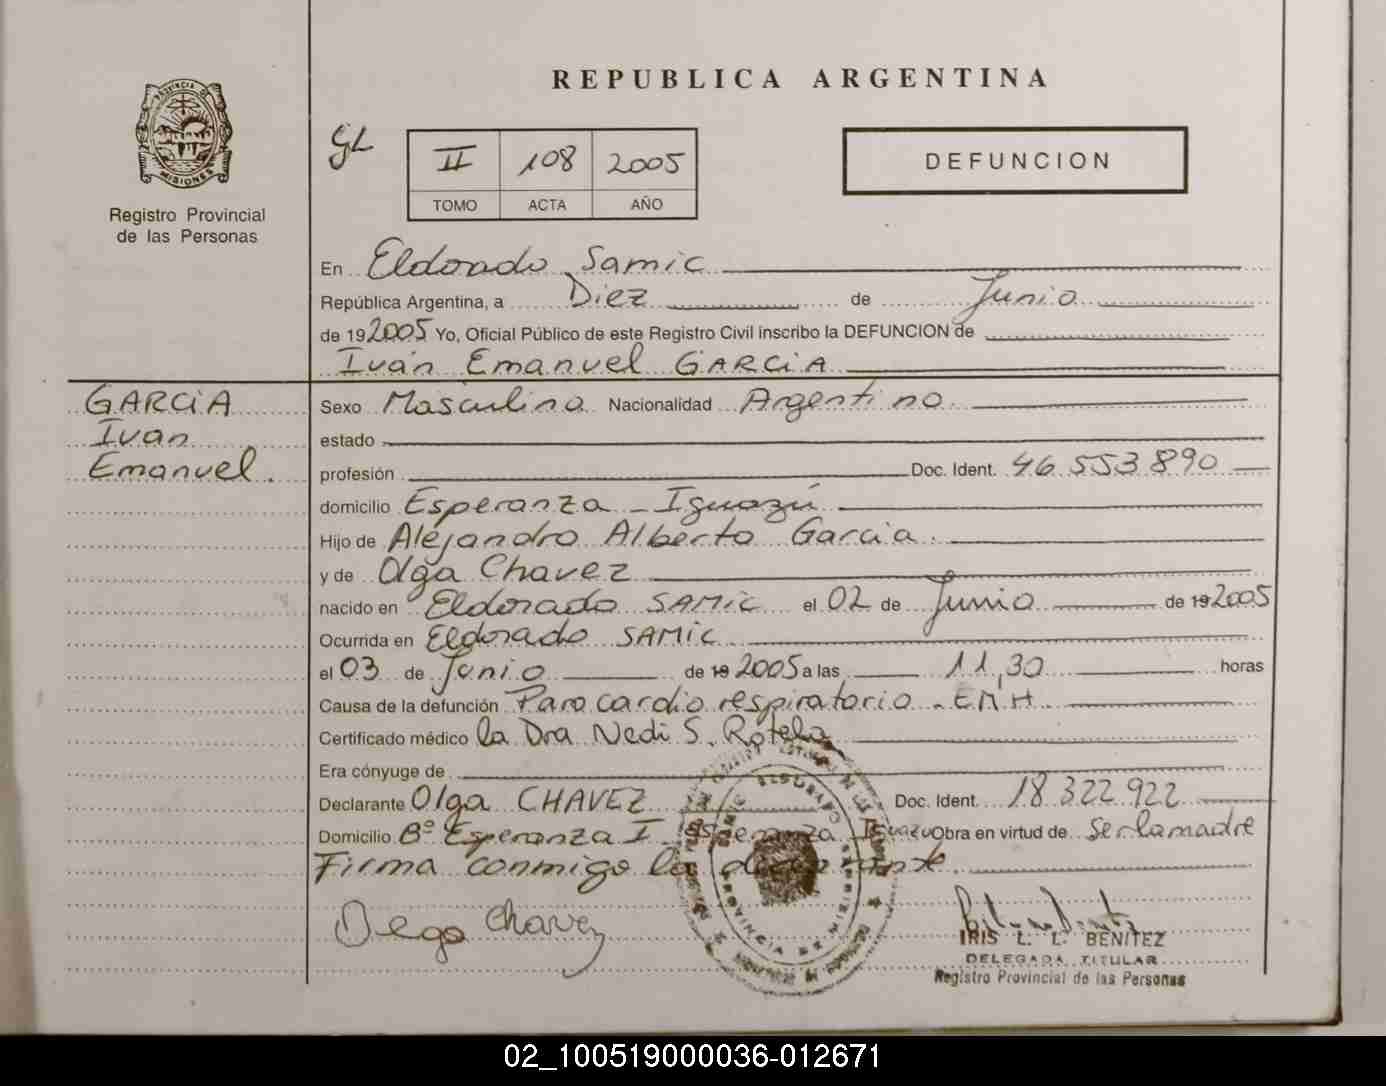 PROVINCIA DE
MISIONES
Registro Provincial
de las Personas
REPUBLICA ARGENTINA
GL
II 108 2005
TOMO ACTA AÑO
DEFUNCION
En Eldorado Samic
República Argentina, a Diez de Junio
de 19 2005 Yo, Oficial Público de este Registro Civil inscribo la DEFUNCION de
Iván Emanuel GARCIA
GARCIA
Ivan
Emanuel.
Sexo Masculino Nacionalidad Argentino
estado
profesión Doc. Ident. 46.553.890
domicilio Esperanza - Iguazú
Hijo de Alejandro Alberto Garcia.
y de Olga Chavez
nacido en Eldorado SAMIC el 02 de Junio de 19 2005
Ocurrida en Eldorado SAMIC
el 03 de Junio de 19 2005 a las 11,30 horas
Causa de la defunción Paro cardio respiratorio - EMH
Certificado médico la Dra Nedi S. Rotela
Era cónyuge de
Declarante Olga CHAVEZ Doc. Ident. 18.322.922
Domicilio Bº Esperanza I Esperanza Iguazu Obra en virtud de Ser la madre
Firma conmigo la declarante.
Olega Chavez
IRIS L. L. BENITEZ
DELEGADA TITULAR
Registro Provincial de las Personas
02_100519000036-012671